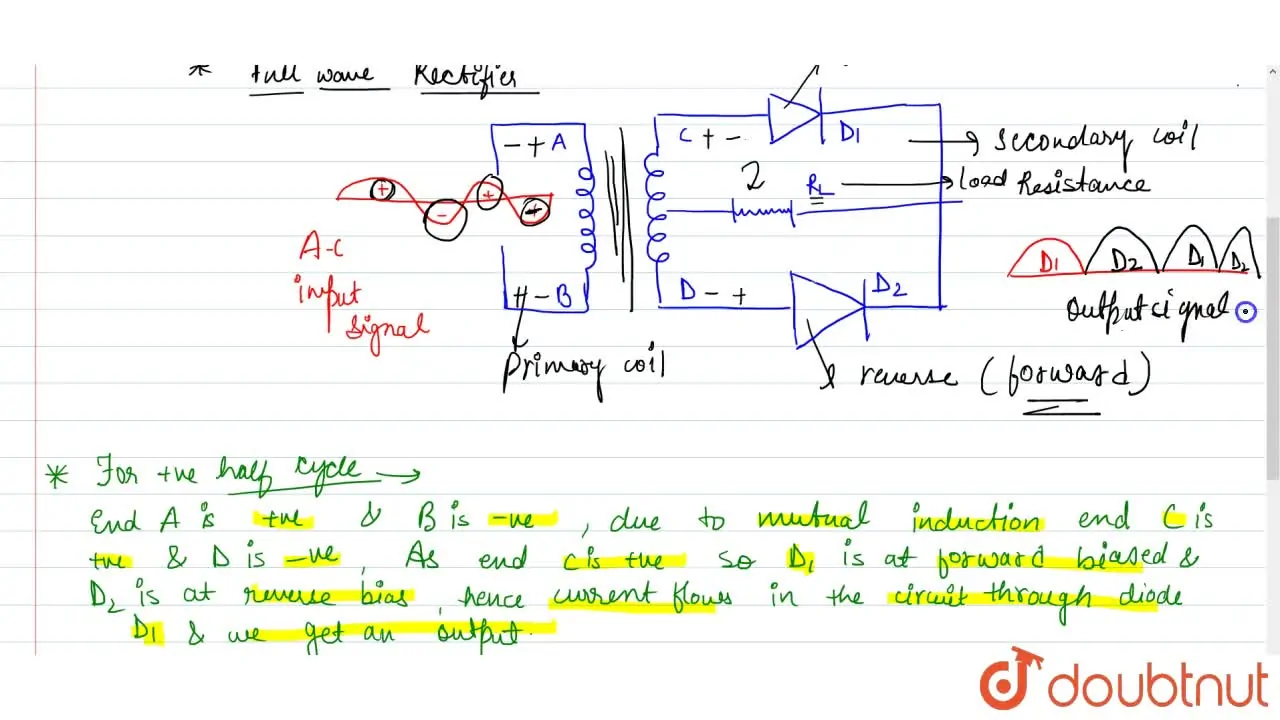 * Full wave Rectifier
- + A
C + -
D1
Secondary coil
RL
load Resistance
+
-
+
+
A-C
input
signal
- B
D - +
D2
D1 D2 D1 D2
Output signal
Primary coil
reverse (forward)
* For +ve half cycle →
End A is +ve & B is -ve, due to mutual induction end C is
+ve & D is -ve, As end C is +ve so D1 is at forward biased &
D2 is at reverse bias, hence current flows in the circuit through diode
D1 & we get an output
doubtnut